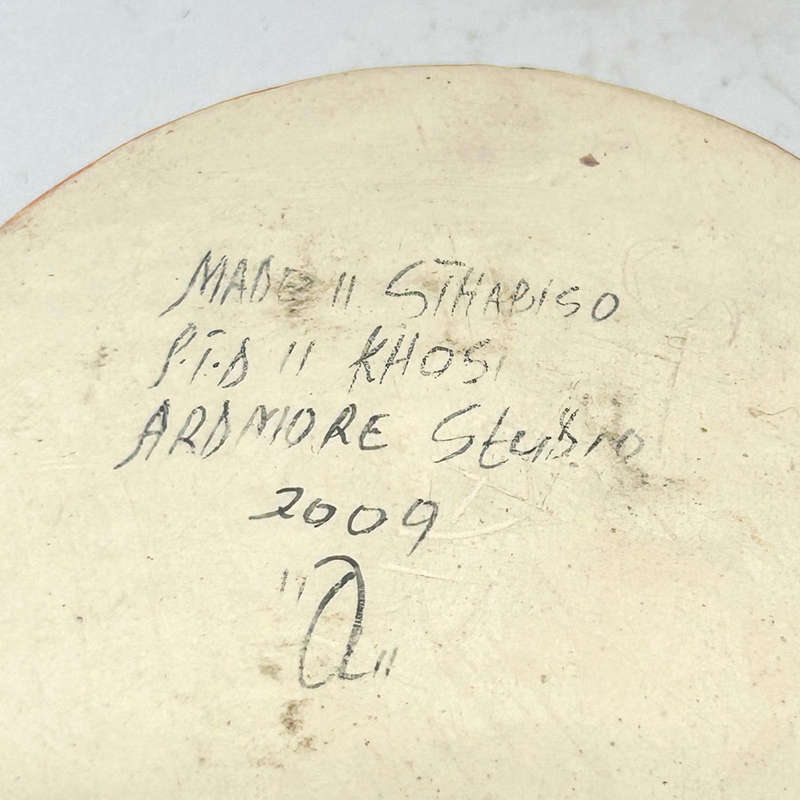 MADE " STHABISO
P.T.D " KHOSI
ARDMORE Studio
2009
"a"